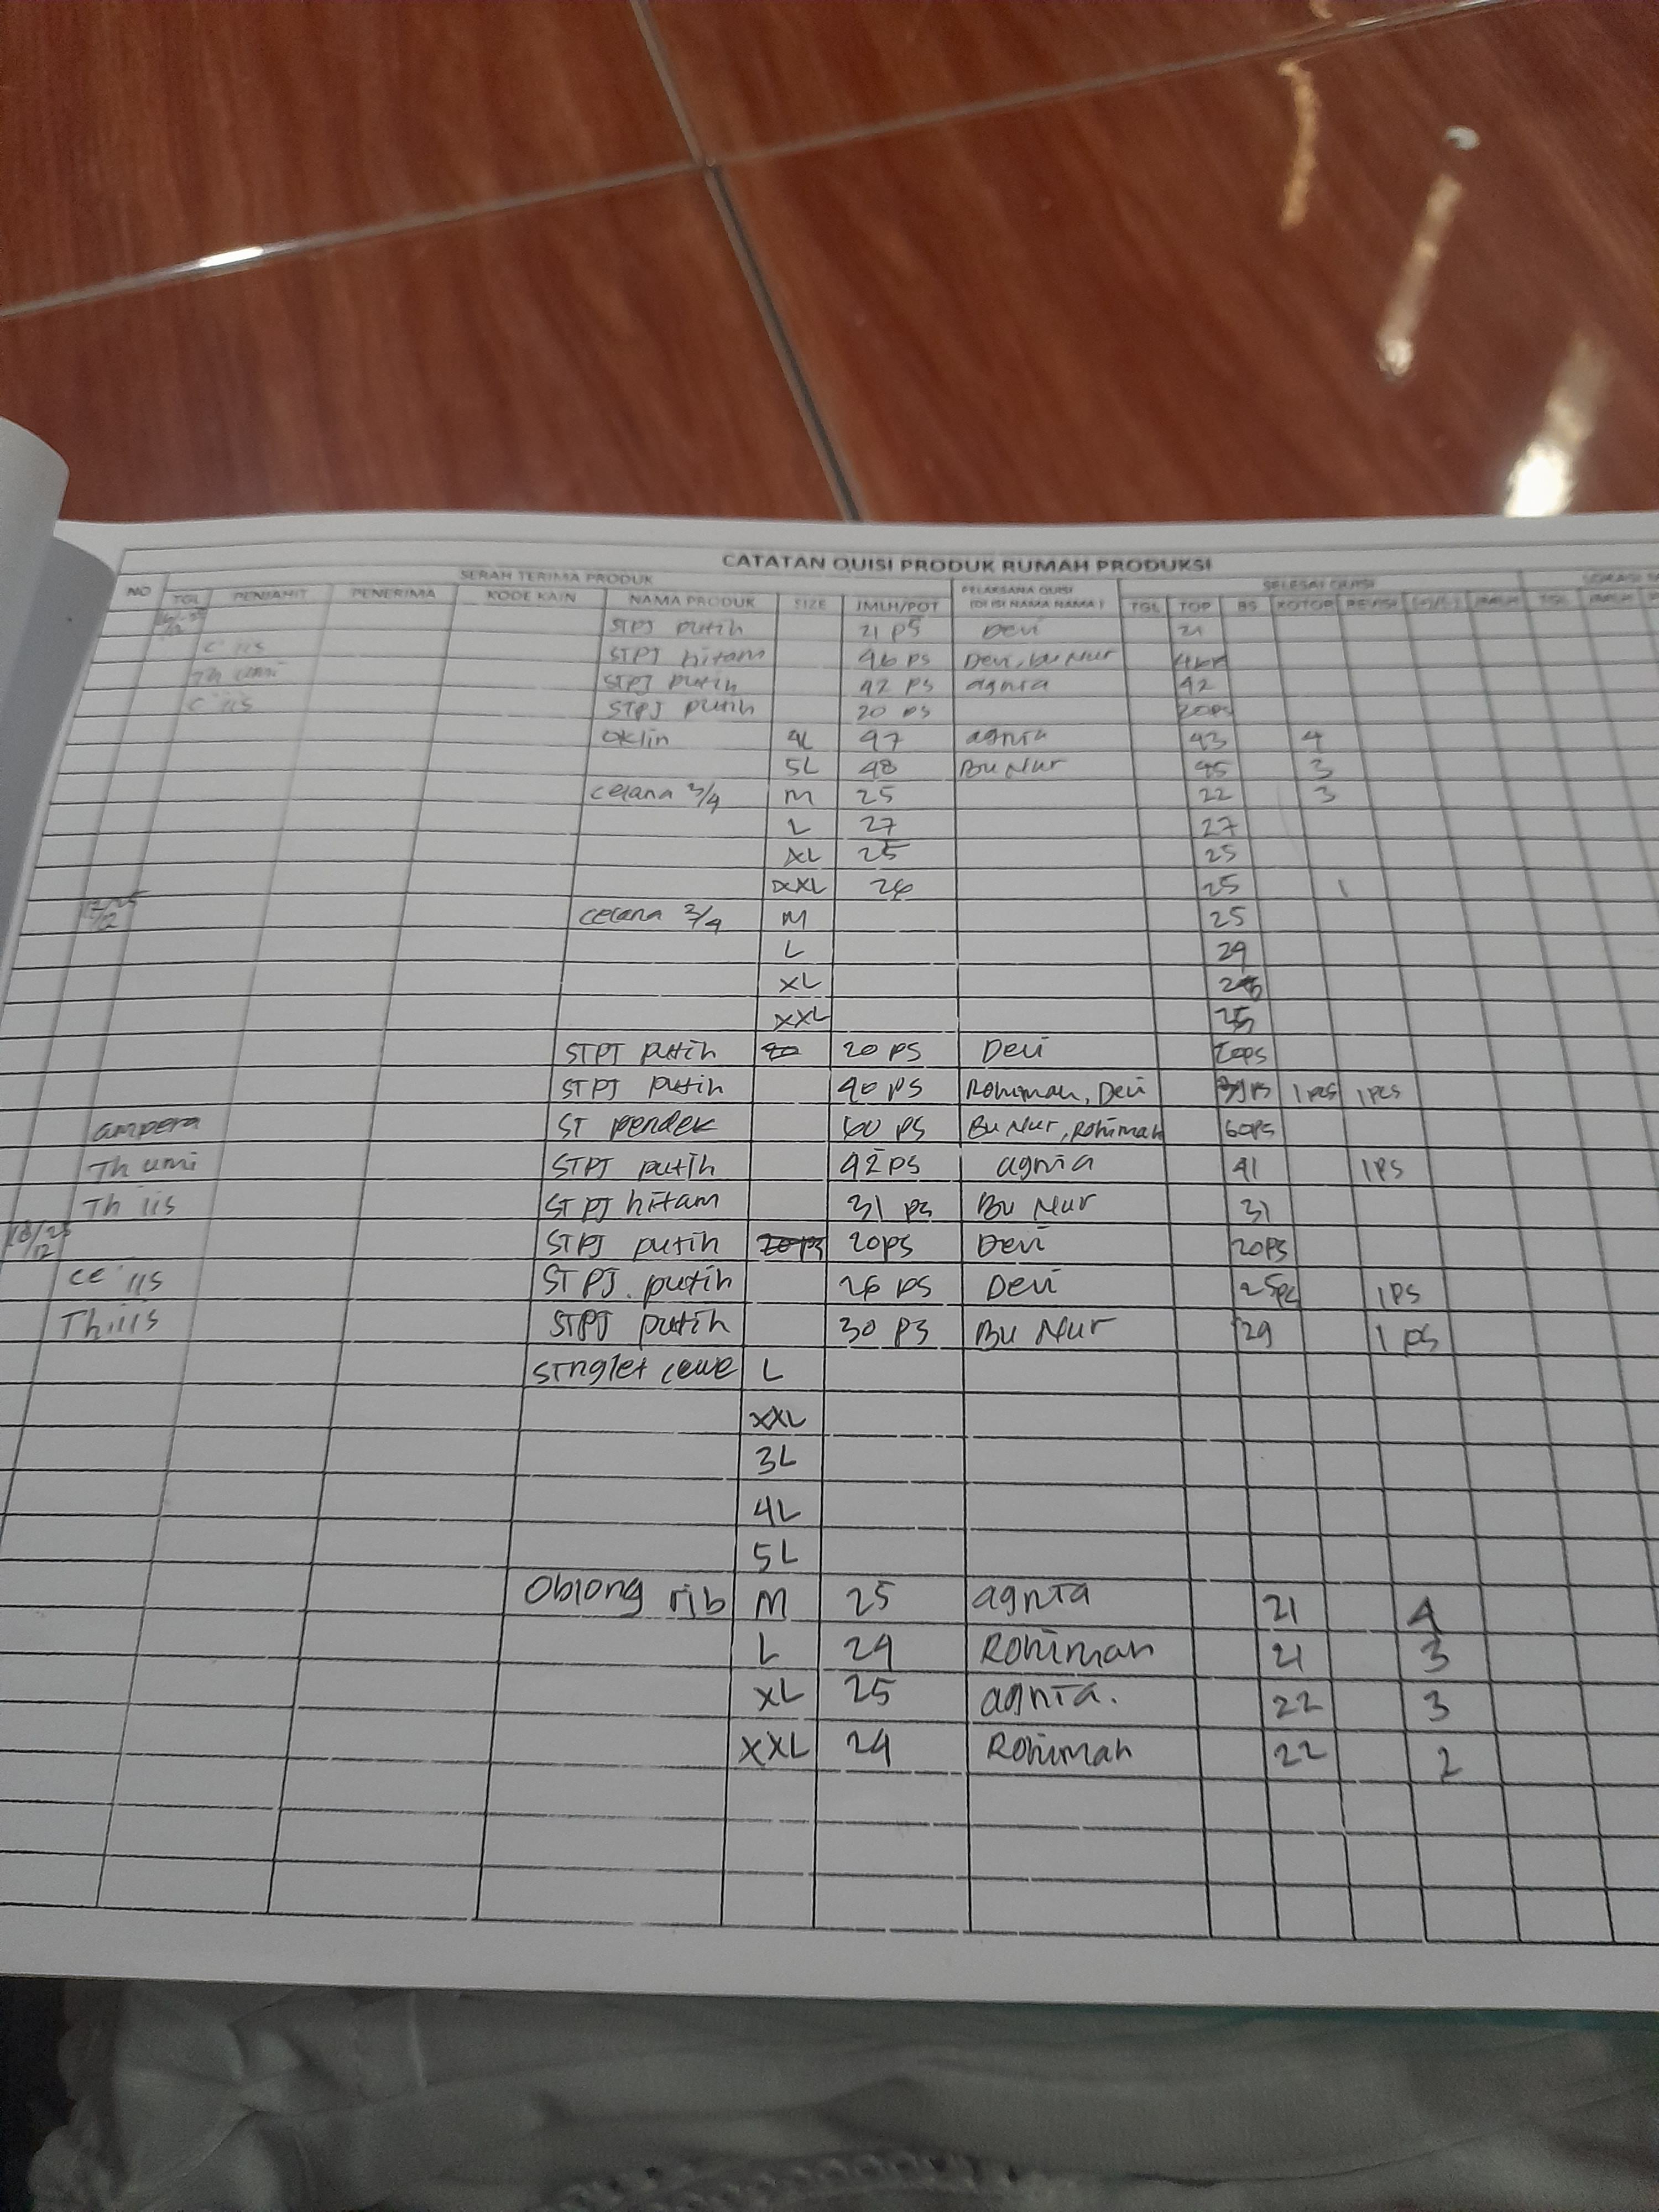 CATATAN QUISI PRODUK RUMAH PRODUKSI
SERAH TERIMA PRODUK SELESAI QUISI
NO TGL PENJAHIT PENERIMA KODE KAIN NAMA PRODUK SIZE JMLH/POT PELAKSANA QUISI (DI ISI NAMA NAMA) TGL TOP BS KOTOR REVISI
STPJ putih 21 PS Devi 21
STPJ hitam 46 PS Devi, bu Nur
Th umi STPJ putih 42 PS agnia 42
STPJ putih 20 PS 20PS
Oklin 4L 47 agnia 43 4
5L 48 Bu Nur 45 3
celana 3/4 M 25 22 3
L 27 27
XL 25 25
XXL 26 25 1
celana 3/4 M 25
L 24
XL
XXL 25
STPJ putih 20 PS Devi 20PS
STPJ putih 40 PS Rohimah, Devi 39PS 1 pcs 1 pcs
ampera ST pendek 60 PS Bu Nur, Rohimah 60PS
Th umi STPJ putih 42 PS agnia 41 1PS
Th iis STPJ hitam 31 PS Bu Nur 31
18/25 12 STPJ putih 20PS Devi 20PS
ce iis STPJ. putih 26 PS Devi 1PS
Th iis STPJ putih 30 PS Bu Nur 29 1 PS
singlet cewe L
XXL
3L
4L
5L
Oblong rib M 25 agnia 21 4
L 24 Rohimah 21 3
XL 25 agnia. 22 3
XXL 24 Rohimah 22 2